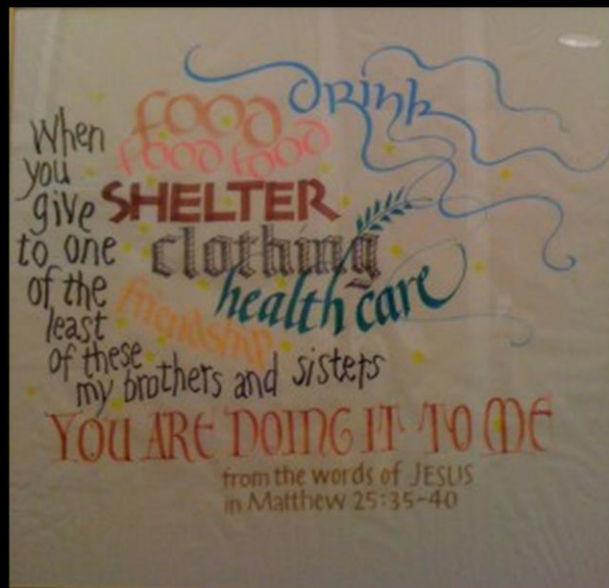 When
you
give
to one
of the
least
of these
my brothers and sisters
food
drink
food food
SHELTER
clothing
health care
friendship
YOU ARE DOING IT TO ME
from the words of JESUS
in Matthew 25:35-40